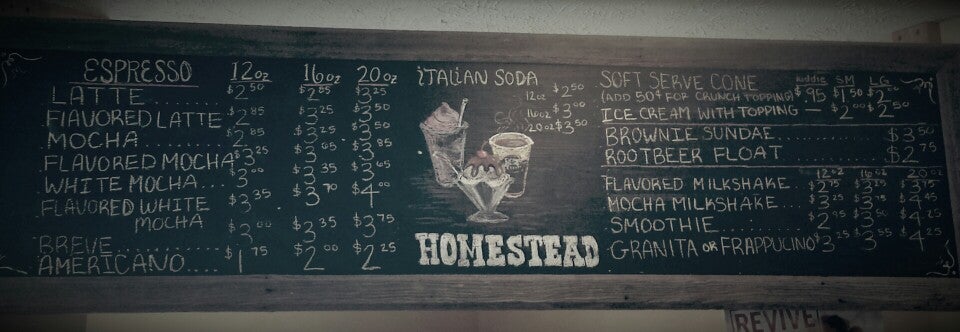 ESPRESSO 12oz 16oz 20oz
LATTE........ $2.50 $2.85 $3.25
FLAVORED LATTE $2.85
MOCHA......... $2.85
FLAVORED MOCHA $3.25
WHITE MOCHA... $3.00 $3.35 $3.65
FLAVORED WHITE MOCHA $3.35 $3.70 $4.00
BREVE......... $3.00 $3.35 $3.75
AMERICANO.... $1.75 $2.00 $2.25
iTALiAN SODA
12oz $2.50
16oz $3.00
20oz $3.50
HOMESTEAD
SOFT SERVE CONE kiddie SM LG
(ADD 50¢ FOR CRUNCH TOPPING) $.95 $1.50
ICE CREAM WITH TOPPING — $2.00 $2.50
BROWNIE SUNDAE......... $3.50
ROOTBEER FLOAT......... $2.75
12oz 16oz 20oz
FLAVORED MILKSHAKE.. $2.75 $3.25 $3.75
MOCHA MILKSHAKE... $3.25
SMOOTHIE........ $2.95 $3.50 $4.25
GRANITA OR FRAPPUCINO $3.25 $3.55 $4.25
REVIVE